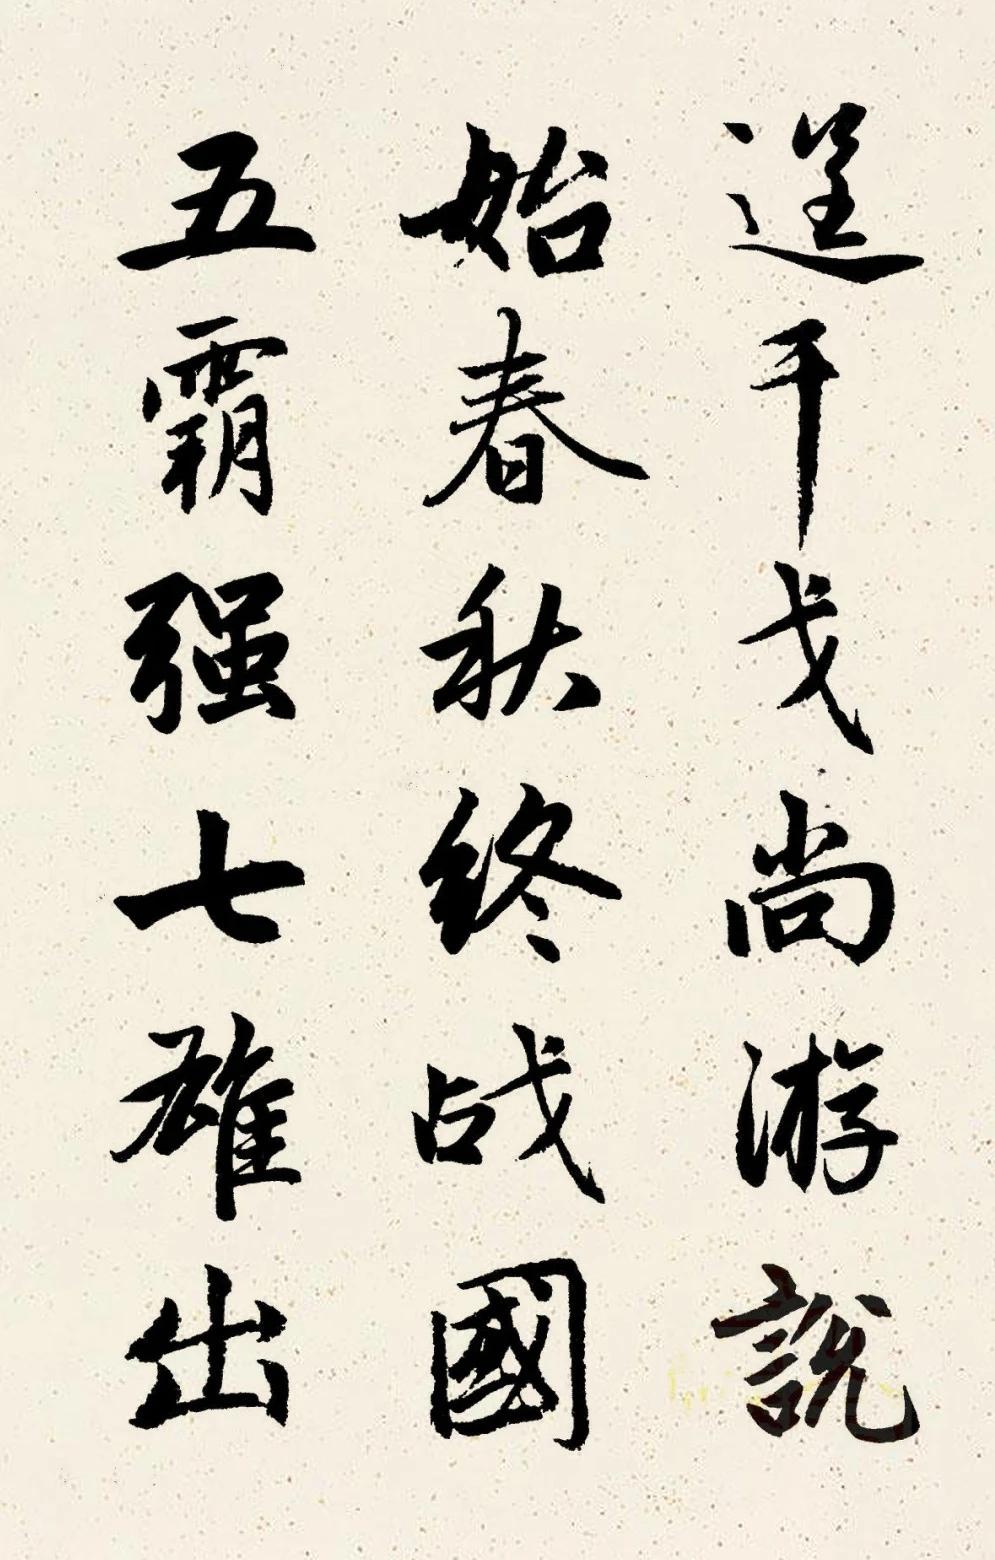 逞干戈尚游說
始春秋终战國
五霸强七雄出